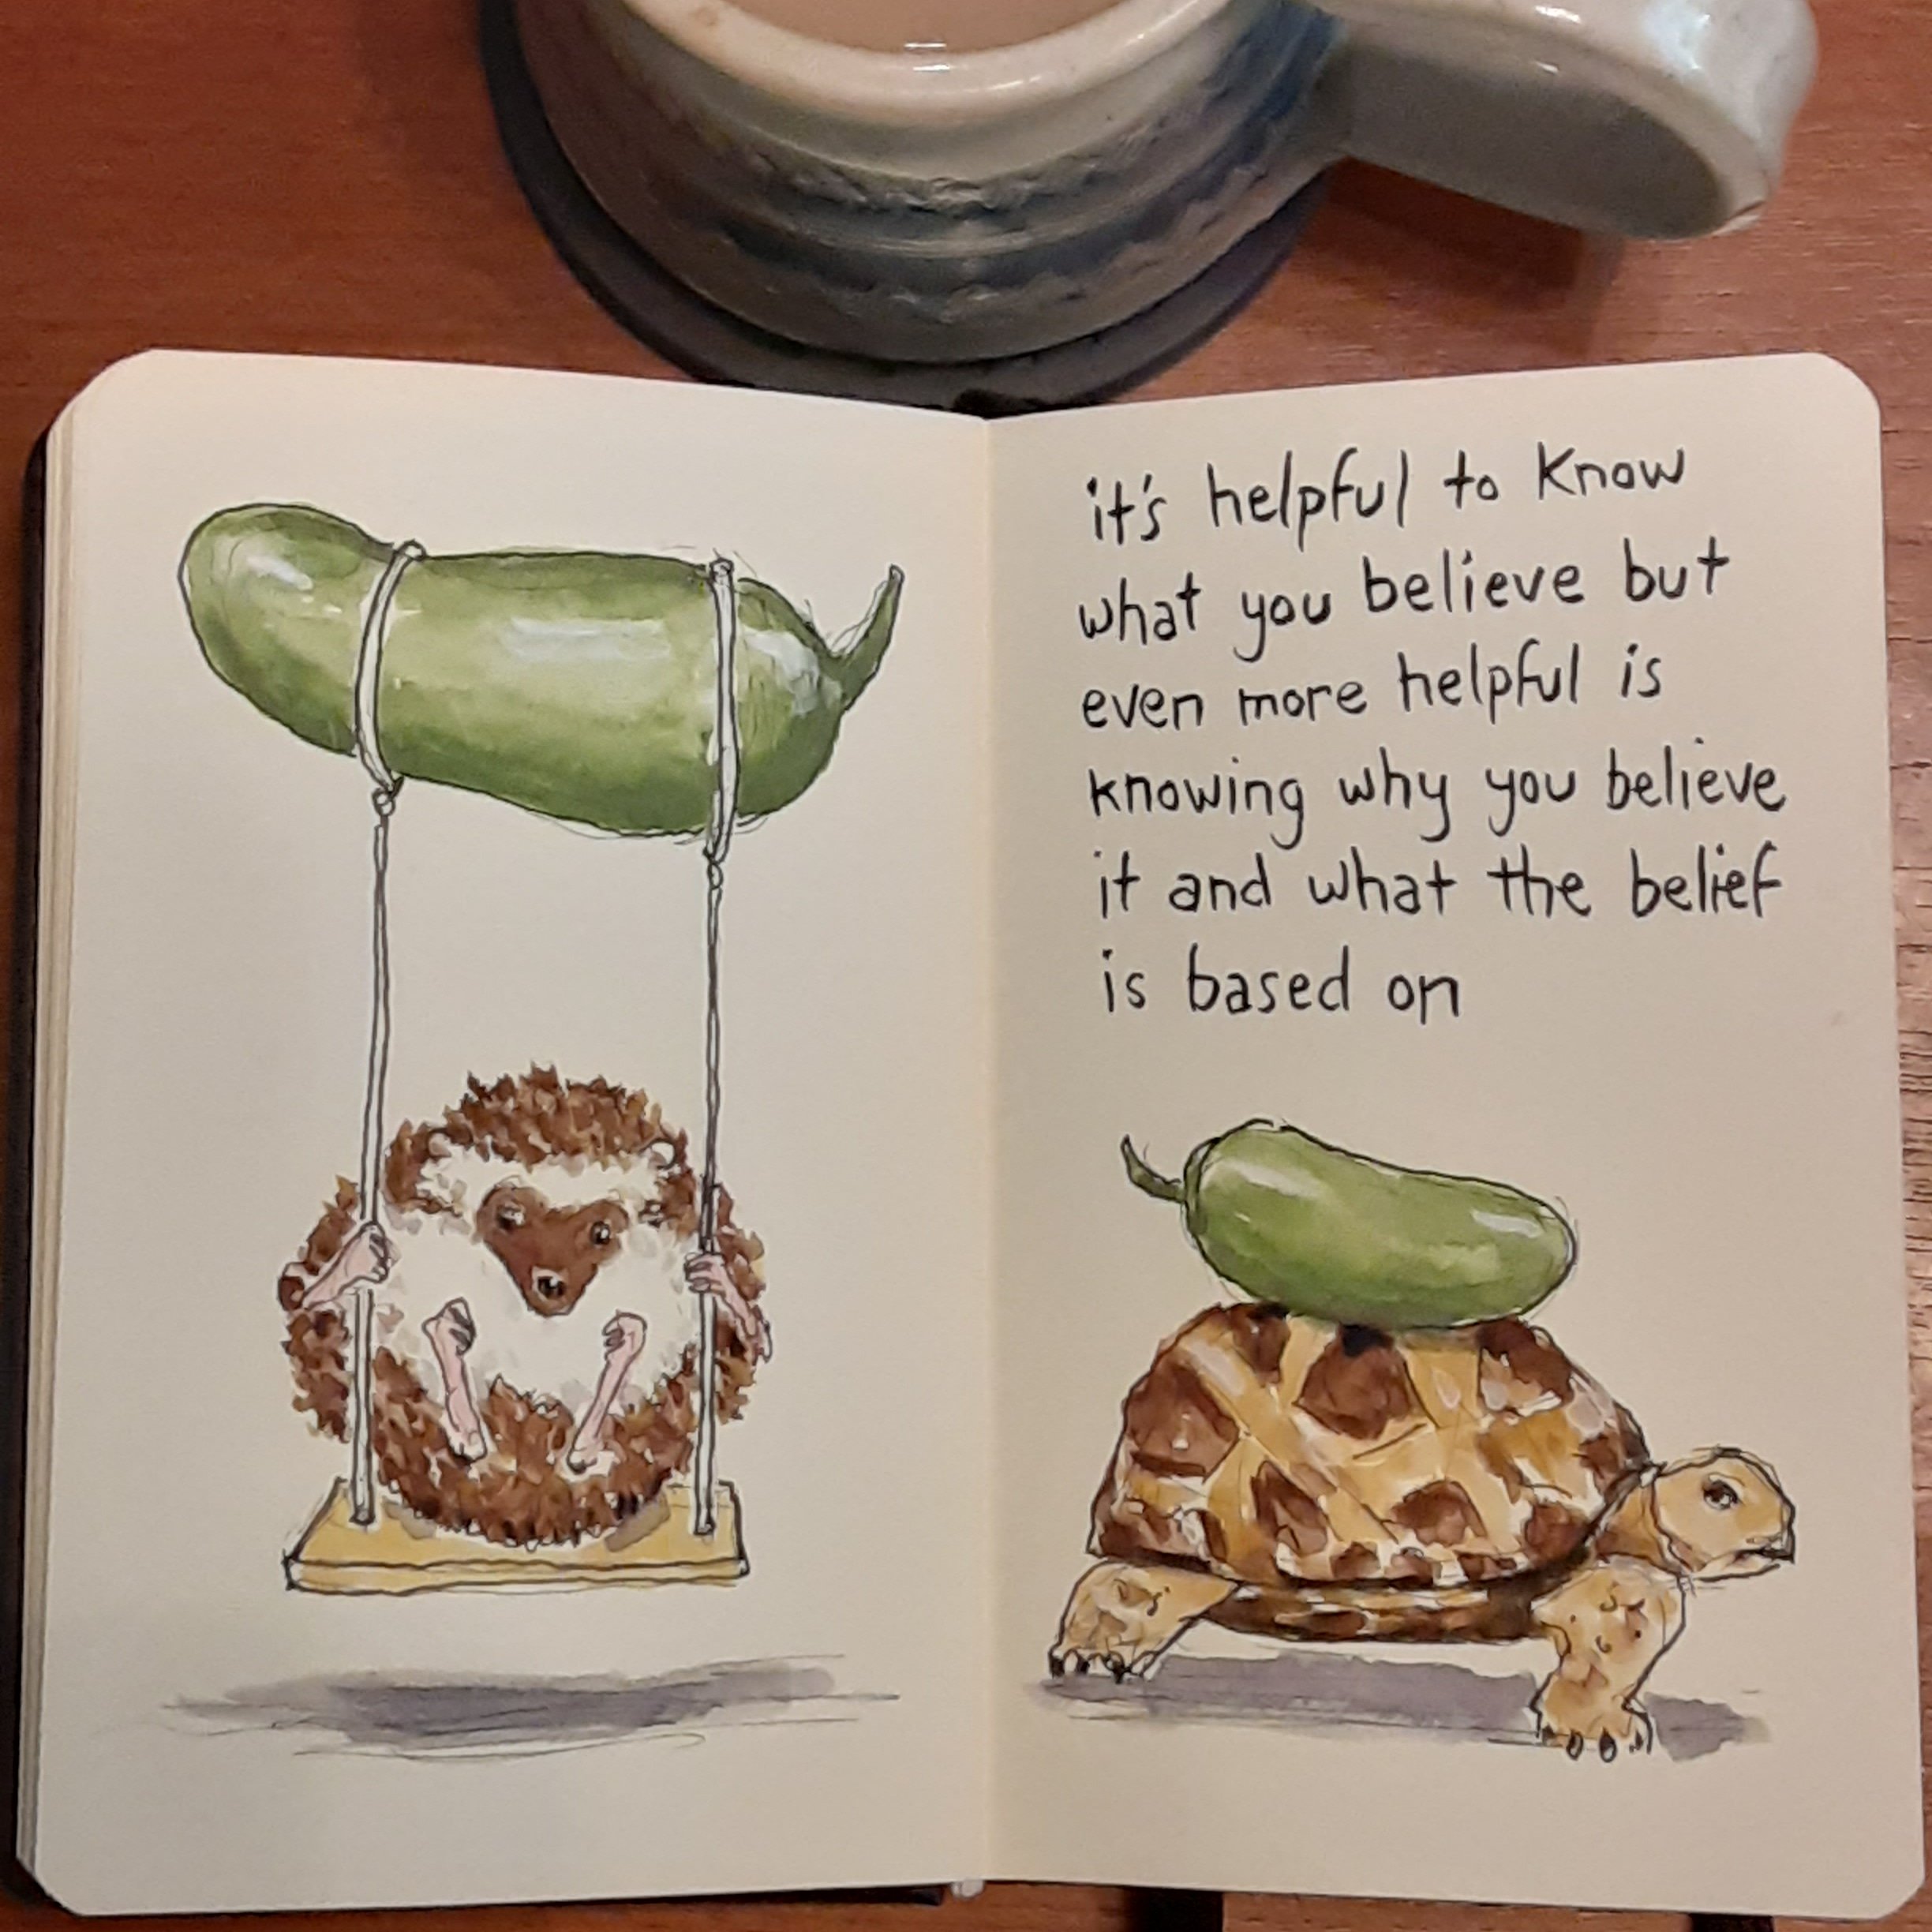 it's helpful to know
what you believe but
even more helpful is
knowing why you believe
it and what the belief
is based on